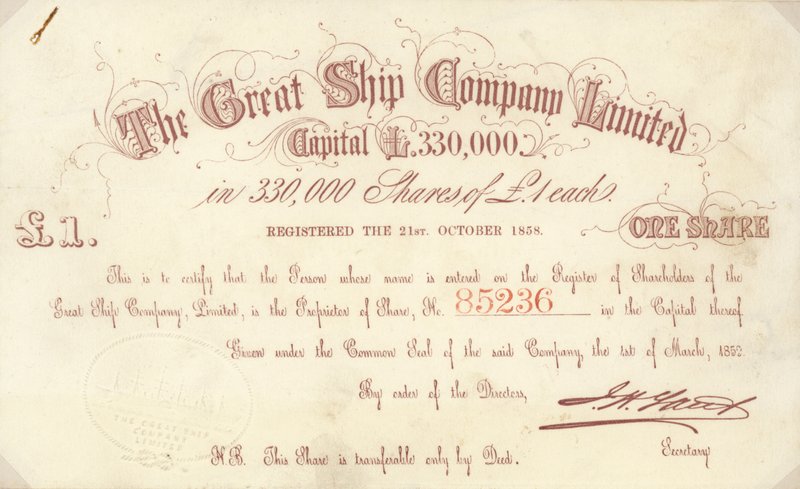 The Great Ship Company Limited
Capital £.330,000.
in 330,000 Shares of £.1 each.
REGISTERED THE 21ST. OCTOBER 1858.
£1.
ONE SHARE
This is to certify that the Person whose name is entered on the Register of Shareholders of the
Great Ship Company, Limited, is the Proprietor of Share, No. 85236 in the Capital thereof.
Given under the Common Seal of the said Company, the 1st of March, 1859.
By order of the Directors,
THE GREAT SHIP
COMPANY
LIMITED
Secretary
N.B. This Share is transferable only by Deed.